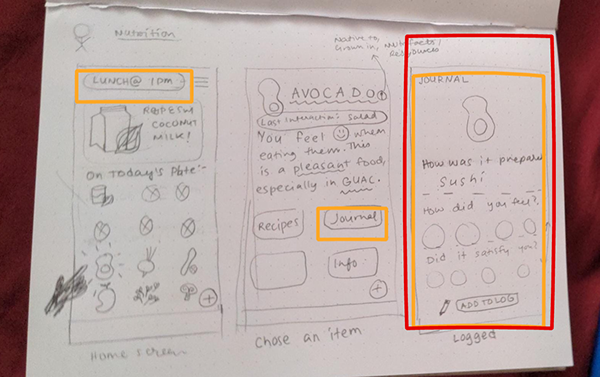 Nutrition
LUNCH@ 1pm
REFRESH
COCONUT
MILK!
On TODAY'S PLATE:-
Home screen
Native to,
Grown in,
AVOCADO
Last Interaction: Salad
You feel when
eating them. This
is a pleasant food,
especially in GUAC.
Recipes
Journal
Info.
Chose an item
JOURNAL
How was it prepared
Sushi
How did you feel?
Did it satisfy you?
ADD TO LOG
Logged